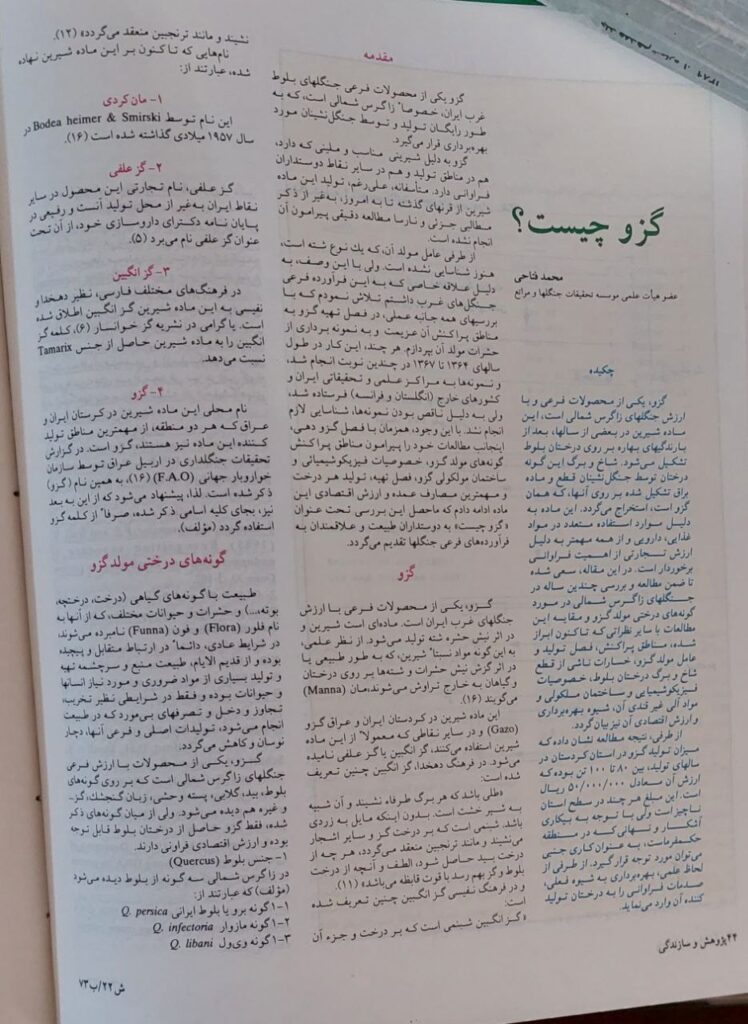 گزو چیست؟
محمد فتاحی
عضو هیأت علمی موسسه تحقیقات جنگلها و مراتع
چکیده
گزو، یکی از محصولات فرعی و با
ارزش جنگلهای زاگرس شمالی است، این
ماده شیرین در بعضی از سالها، بعد از
بارندگیهای بهاره بر روی درختان بلوط
تشکیل می‌شود. شاخ و برگ این گونه
درختان توسط جنگل‌نشینان قطع و ماده
براق تشکیل شده بر روی آنها، که همان
گزو است، استخراج می‌گردد. این ماده به
دلیل موارد استفاده متعدد در مواد
غذایی، دارویی و از همه مهمتر به دلیل
ارزش تجارتی از اهمیت فراوانی
برخوردار است. در این مقاله، سعی شده
تا ضمن مطالعه و بررسی چندین ساله در
جنگلهای زاگرس شمالی در مورد
گونه‌های درختی مولد گزو و مقایسه این
مطالعات با سایر نظراتی که تاکنون ابراز
شده، مناطق پراکنش، فصل تولید و
عامل مولد گزو، خسارات ناشی از قطع
شاخ و برگ درختان بلوط، خصوصیات
فیزیکوشیمیایی و ساختمان ملکولی و
مواد آلی غیر قندی آن، شیوه بهره‌برداری
و ارزش اقتصادی آن نیز بیان گردد.
از طرفی، نتیجه مطالعه نشان داده که
میزان تولید گزو در استان کردستان در
سالهای تولید، بین ۸۰ تا ۱۰۰ تن بوده که
ارزش آن معادل ۵۰/۰۰۰/۰۰۰ ریال
است. این مبلغ هر چند در سطح استان
ناچیز است ولی با توجه به بیکاری
آشکار و نهانی که در منطقه
حکمفرماست، به عنوان کاری جنبی
می‌توان مورد توجه قرار گیرد. از طرفی از
لحاظ علمی، بهره‌برداری به شیوه فعلی،
صدمات فراوانی را به درختان تولید
کننده آن وارد می‌نماید.
مقدمه
گزو یکی از محصولات فرعی جنگلهای بلوط
غرب ایران، خصوصاً زاگرس شمالی است، که به
طور رایگان تولید و توسط جنگل‌نشینان مورد
بهره‌برداری قرار می‌گیرد.
گزو به دلیل شیرینی مناسب و ملینی که دارد،
هم در مناطق تولید و هم در سایر نقاط دوستداران
فراوانی دارد. متأسفانه، علی‌رغم، تولید این ماده
شیرین از قرنهای گذشته تا به امروز، به‌غیر از ذکر
مطالبی جزئی و نارسا مطالعه دقیقی پیرامون آن
انجام نشده است.
از طرفی عامل مولد آن، که یك نوع شته است،
هنوز شناسایی نشده است. ولی با این وصف، به
دلیل علاقه خاصی که به این فرآورده فرعی
جنگل‌های غرب داشتم تلاش نمودم که با
بررسیهای همه جانبه عملی، در فصل تهیه گزو به
مناطق پراکنش آن عزیمت و به نمونه برداری از
حشرات مولد آن بپردازم. هر چند، این کار در طول
سالهای ۱۳۶۴ تا ۱۳۶۷ در چندین نوبت انجام شد،
و نمونه‌ها به مراکز علمی و تحقیقاتی ایران و
کشورهای خارج (انگلستان و فرانسه) فرستاده شد،
ولی به دلیل ناقص بودن نمونه‌ها، شناسایی لازم
انجام نشد. با این وجود، همزمان با فصل گزو دهی،
اینجانب مطالعات خود را پیرامون مناطق پراکنش
گونه‌های مولد گزو، خصوصیات فیزیکوشیمیائی و
ساختمان مولکولی گزو، فصل تهیه، تولید هر درخت
و مهمترین مصارف عمده و ارزش اقتصادی این
ماده ادامه دادم که ماحصل این بررسی تحت عنوان
«گزو چیست» به دوستداران طبیعت و علاقمندان به
فرآورده‌های فرعی جنگلها تقدیم می‌گردد.
گزو
گزو، یکی از محصولات فرعی با ارزش
جنگلهای غرب ایران است. ماده‌ای است شیرین و
در اثر نیش حشره شته تولید می‌شود. از نظر علمی،
به این گونه مواد نسبتاً شیرین، که به طور طبیعی یا
در اثر گزش نیش حشرات و شته‌ها بر روی درختان
و گیاهان به خارج تراوش می‌شوند، مان (Manna)
می‌گویند (۱۶).
این ماده شیرین در کردستان ایران و عراق گزو
(Gazo) و در سایر نقاطی که معمولاً از این ماده
شیرین استفاده می‌کنند، گز انگبین یا گز علفی نامیده
می‌شود. در فرهنگ دهخدا، گز انگبین چنین تعریف
شده است:
«طلی باشد که هر برگ طرفاء نشیند و آن شبیه
به شیر خشت است. بدون اینکه مایل به زردی
باشد. شبنمی است که بر درخت گز و سایر اشجار
می‌نشیند و مانند ترنجبین منعقد می‌گردد، هر چه از
درخت بید حاصل شود، الطف و آنچه از درخت
بلوط و گز بهم رسد با قوت قابظه می‌باشد» (۱۱).
و در فرهنگ نفیسی گز انگبین چنین تعریف شده
است:
«گز انگبین شبنمی است که بر درخت و جزء آن
نشیند و مانند ترنجبین منعقد می‌گردد» (۱۲).
نام‌هایی که تاکنون بر این ماده شیرین نهاده
شده، عبارتند از:
۱- مان کردی
این نام توسط Bodea heimer & Smirski در
سال ۱۹۵۷ میلادی گذاشته شده است (۱۶).
۲- گز علفی
گز علفی، نام تجارتی این محصول در سایر
نقاط ایران به‌غیر از محل تولید آنست و رفیعی در
پایان نامه دکترای داروسازی خود، از آن تحت
عنوان گز علفی نام می‌برد (۵).
۳- گز انگبین
در فرهنگ‌های مختلف فارسی، نظیر دهخدا و
نفیسی به این ماده شیرین گز انگبین اطلاق شده
است. یا گرامی در نشریه گز خوانسار (۶)، کلمه گز
انگبین را به ماده شیرین حاصل از جنس Tamarix
نسبت می‌دهد.
۴- گزو
نام محلی این ماده شیرین در کرستان ایران و
عراق که هر دو منطقه، از مهمترین مناطق تولید
کننده این ماده نیز هستند، گزو است. در گزارش
تحقیقات جنگلداری در اربیل عراق توسط سازمان
خواروبار جهانی (F.A.O) (۱۶)، به همین نام (گزو)
ذکر شده است. لذا، پیشنهاد می‌شود که از این به بعد
نیز، بجای کلیه اسامی ذکر شده، صرفاً از کلمه گزو
استفاده گردد (مؤلف).
گونه‌های درختی مولد گزو
طبیعت با گونه‌های گیاهی (درخت، درختچه،
بوته،...) و حشرات و حیوانات مختلف، که از آنها به
نام فلور (Flora) و فون (Funna) نامبرده می‌شوند،
در شرایط عادی، دائماً در ارتباط متقابل و پیچیده
بوده و از قدیم الایام، طبیعت منبع و سرچشمه تهیه
و تولید بسیاری از مواد ضروری و مورد نیاز انسانها
و حیوانات بوده و فقط در شرایطی نظیر تخریب،
تجاوز و دخل و تصرفهای بی‌مورد که در طبیعت
انجام می‌شود، تولیدات اصلی و فرعی آنها، دچار
نوسان و کاهش می‌گردد.
گزو، یکی از محصولات با ارزش فرعی
جنگلهای زاگرس شمالی است که بر روی گونه‌های
بلوط، بید، گلابی، پسته وحشی، زبان گنجشك، گز-
و غیره هم دیده می‌شود. ولی از میان گونه‌های ذکر
شده، فقط گزو حاصل از درختان بلوط قابل توجه
بوده و ارزش اقتصادی فراونی دارند.
۱- جنس بلوط (Quercus)
در زاگرس شمالی سه گونه از بلوط دیده می‌شود
(مؤلف) که عبارتند از:
۱-۱گونه برو یا بلوط ایرانی Q. persica
۱-۲گونه مازودار Q. infectoria
۱-۳گونه وی‌ول Q. libani
۴۴ پژوهش و سازندگی
ش۲۲/ب۷۳